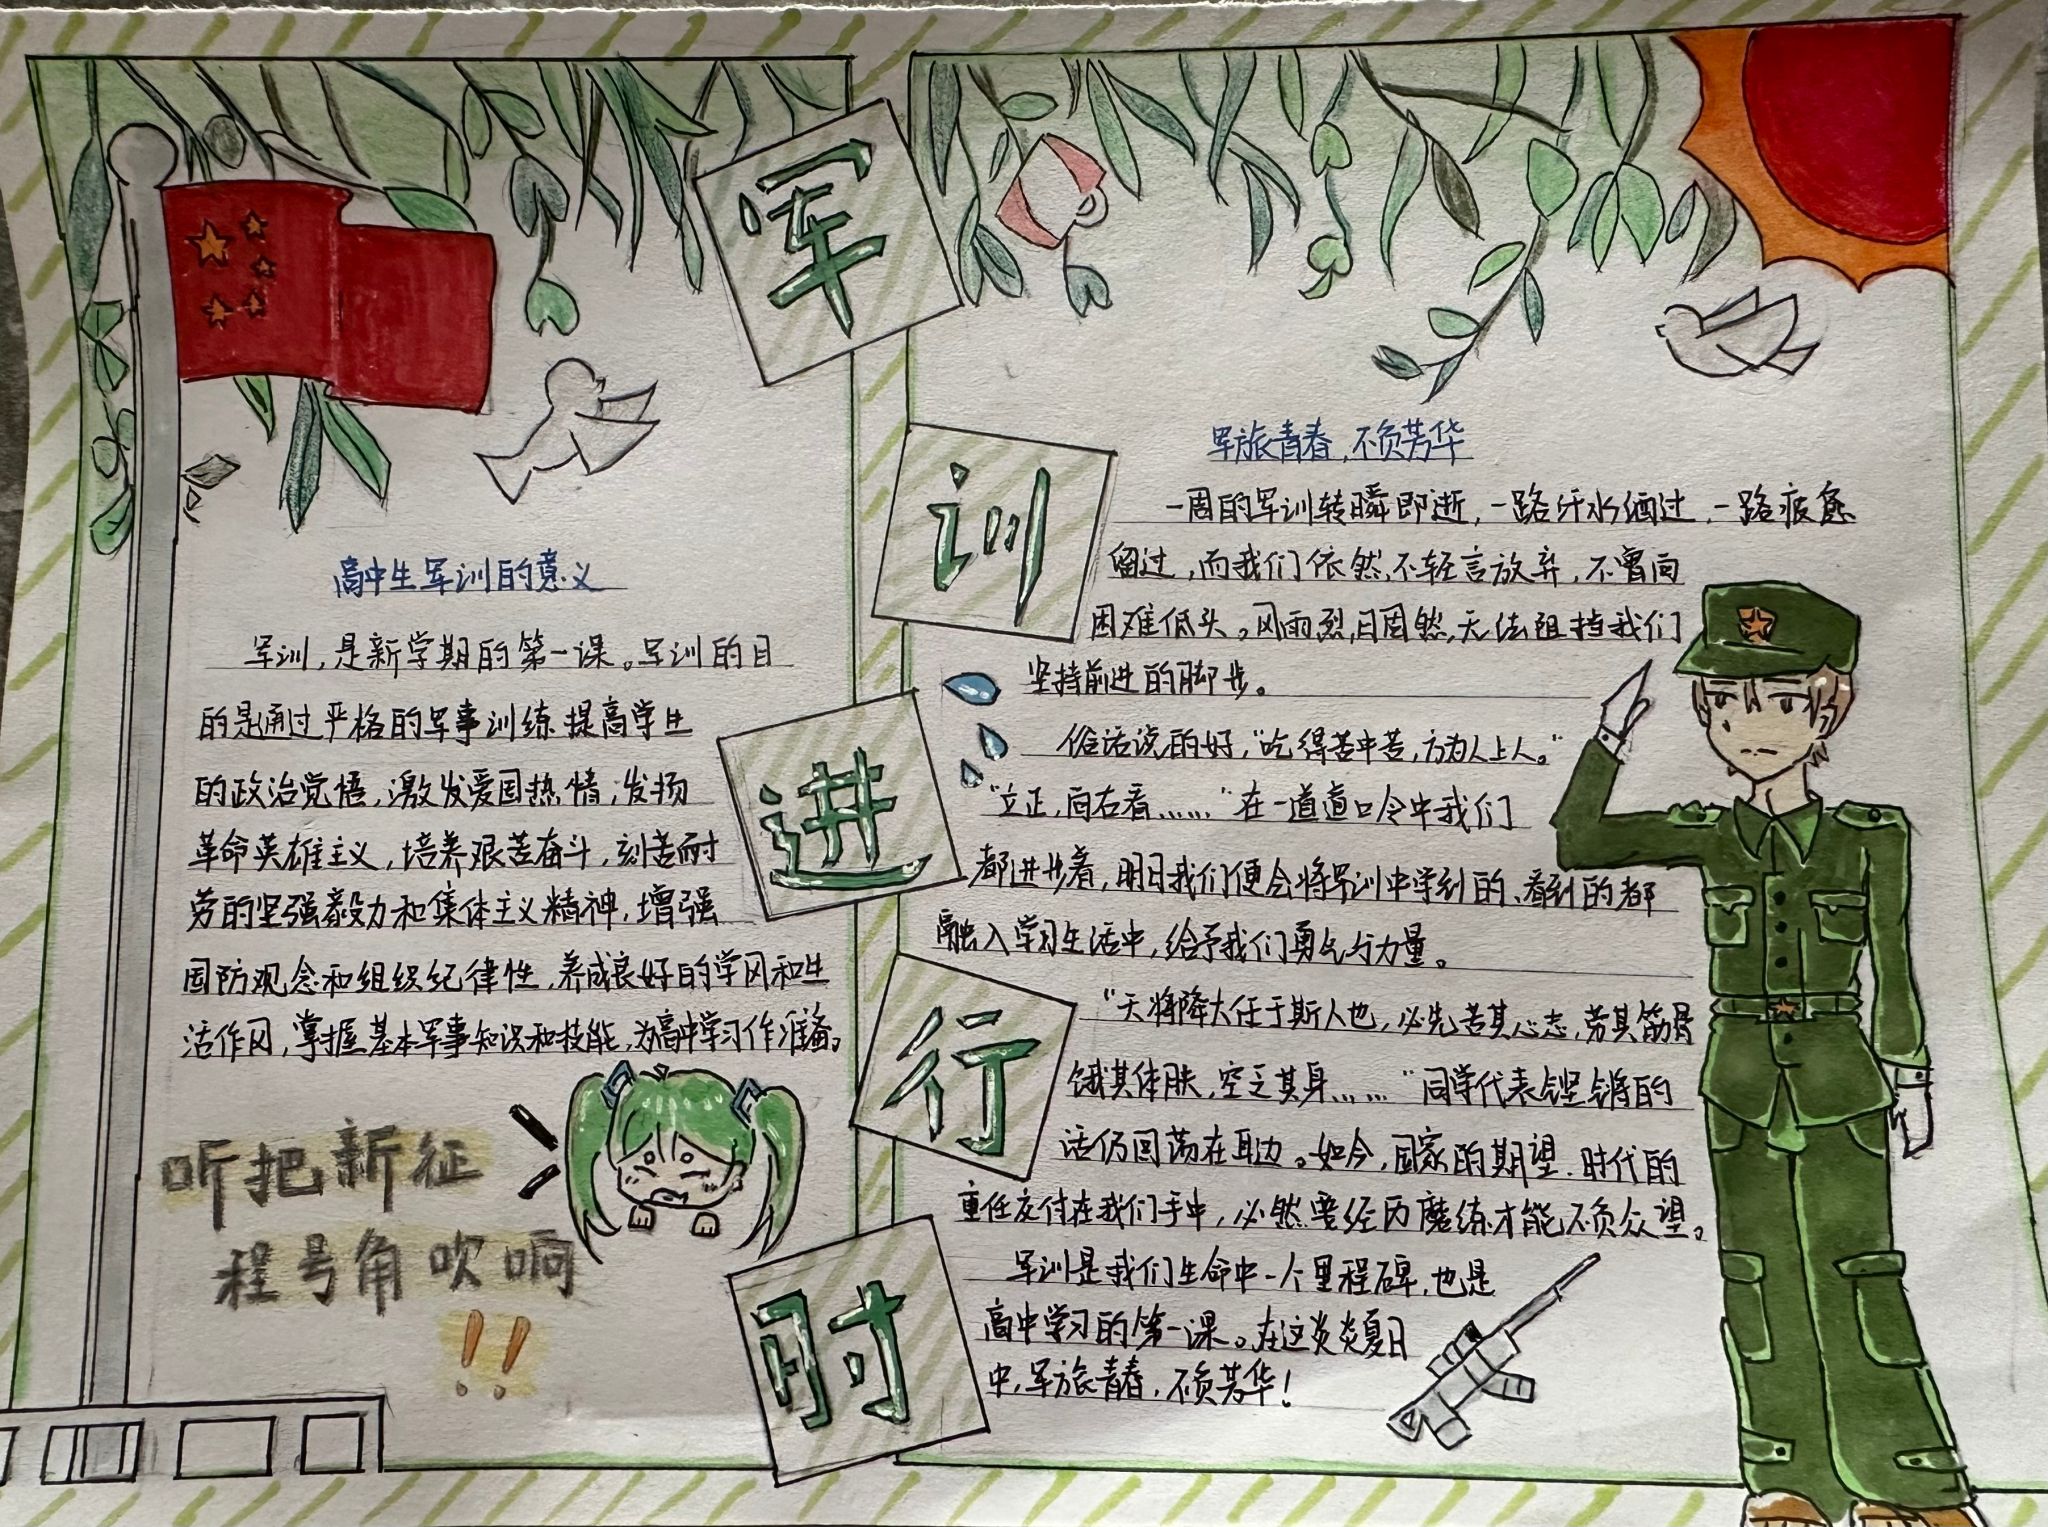 军
训
进
行
时
高中生军训的意义
军训,是新学期的第一课。军训的目
的是通过严格的军事训练提高学生
的政治觉悟,激发爱国热情,发扬
革命英雄主义,培养艰苦奋斗,刻苦耐
劳的坚强毅力和集体主义精神,增强
国防观念和组织纪律性,养成良好的学风和生
活作风,掌握基本军事知识和技能,为高中学习作准备。
听把新征
程号角吹响
!!
军旅青春,不负芳华
一周的军训转瞬即逝,一路汗水洒过,一路疲惫
留过,而我们依然不轻言放弃,不曾向
困难低头。风雨烈日固然,无法阻挡我们
坚持前进的脚步。
俗话说的好,“吃得苦中苦,方为人上人。”
“立正,向右看……”在一道道口令中我们
都进步着,明日我们便会将军训中学到的、看到的都
融入学习生活中,给予我们勇气与力量。
“天将降大任于斯人也,必先苦其心志,劳其筋骨
饿其体肤,空乏其身……”同学代表铿锵的
话仍回荡在耳边。如今,国家的期望、时代的
重任交付在我们手中,必然要经历磨练才能不负众望。
军训是我们生命中一个里程碑,也是
高中学习的第一课。在这炎炎夏日
中,军旅青春,不负芳华!